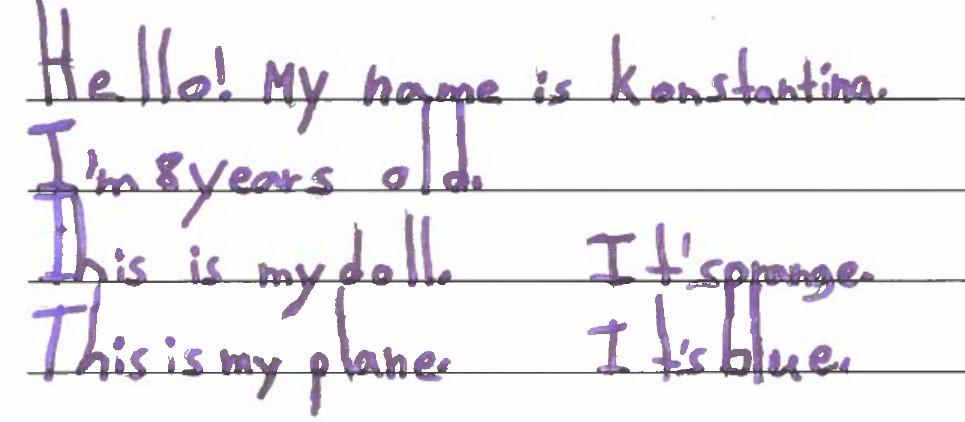 Hello! My name is Konstantina.
I'm 8 years old.
This is my doll. It's orange.
This is my plane. It's blue.